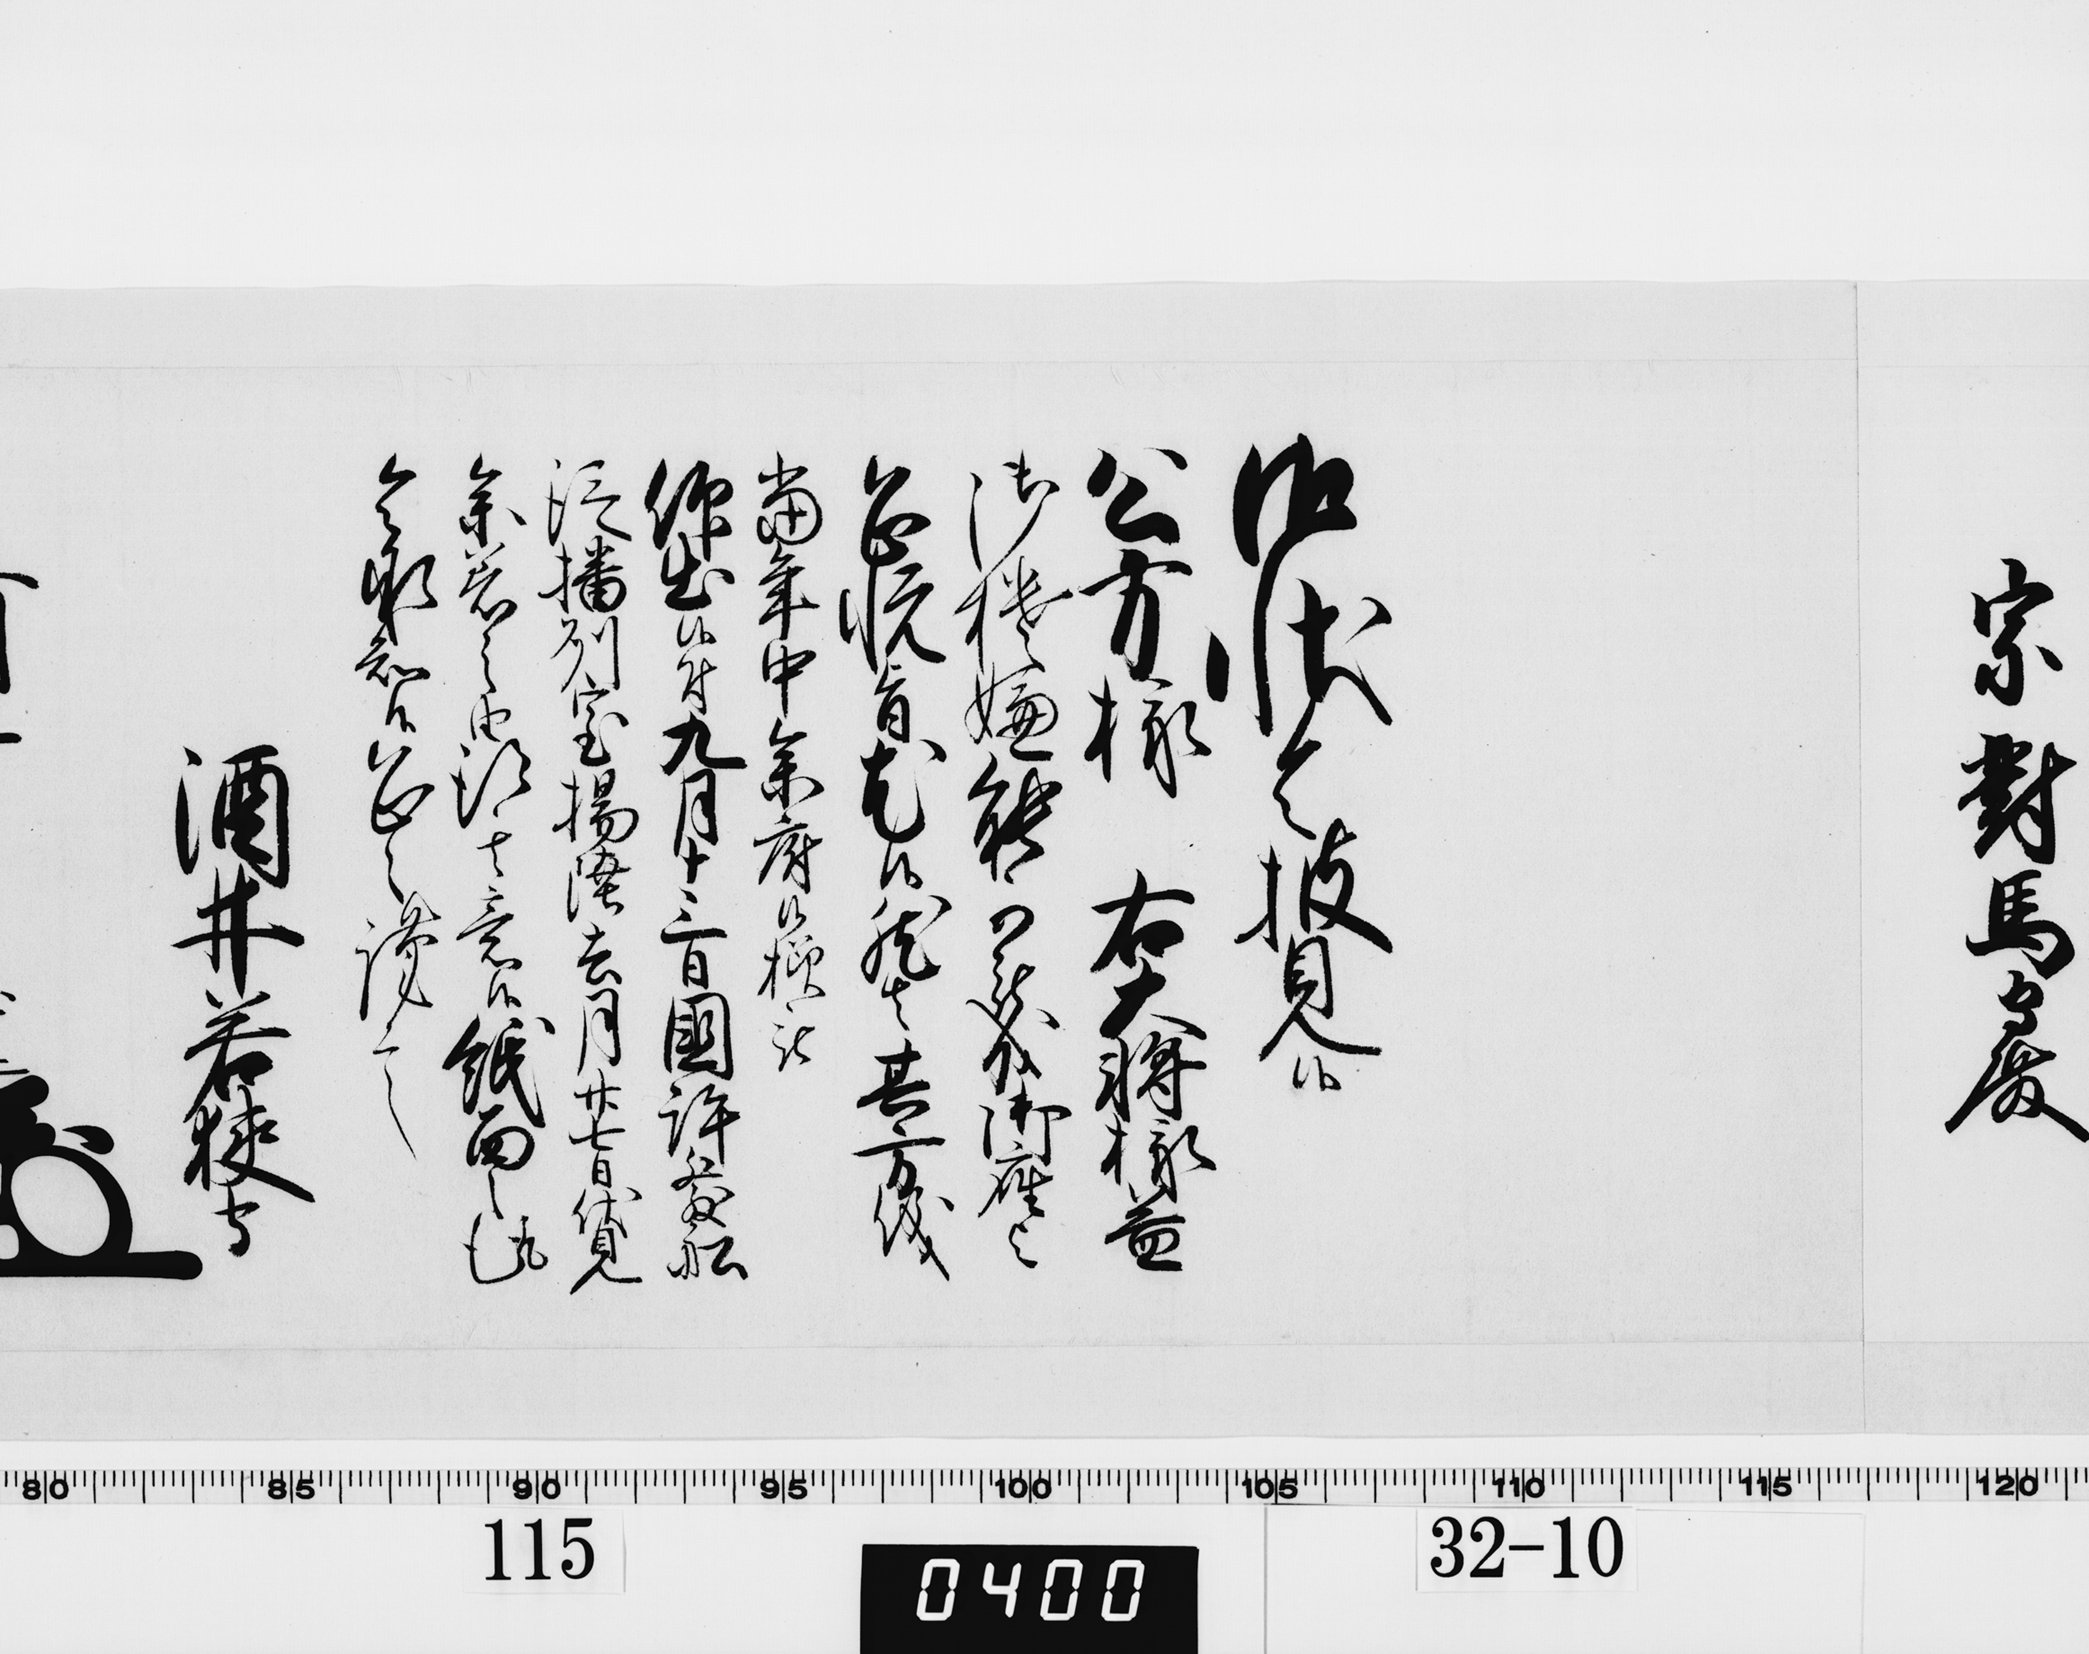 宗對馬守殿
御状令披見候
公方様 右大将様益
御機嫌能被成御座之
恐悦旨尤候然者其方儀
當年中参府候様被
仰出候付九月十三日國許発船
従播州室揚陸去月廿七日見
参着之由得其意候紙面之趣
令承知候恐々謹言
酒井若狭守
80 85 90 95 100 105 110 115 120
115
0400
32-10